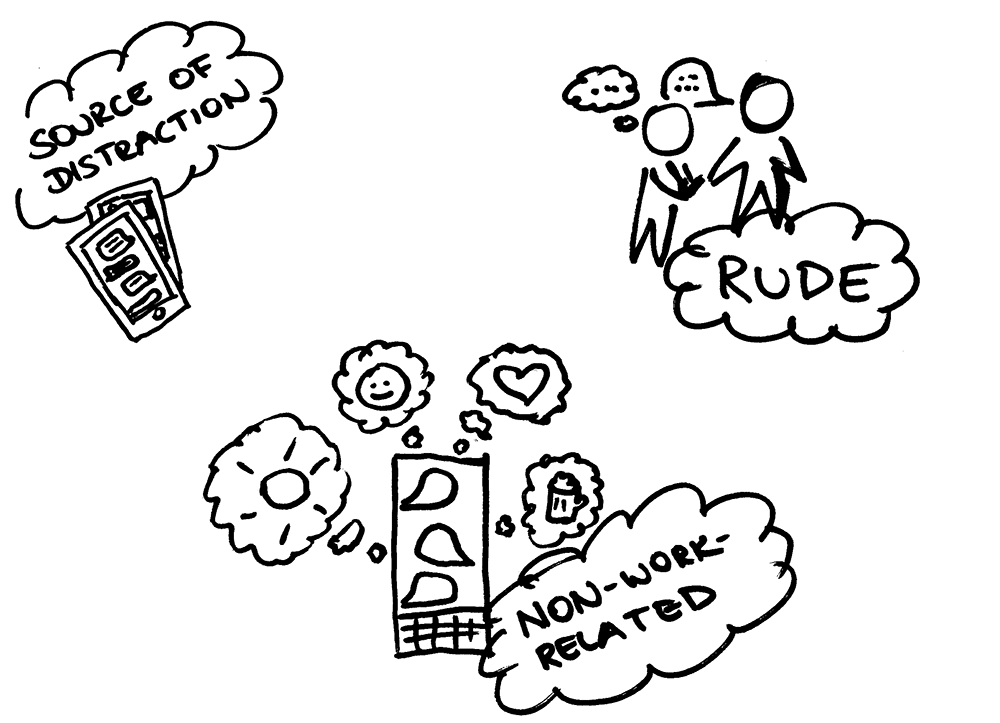 SOURCE OF
DISTRACTION
RUDE
NON-WORK-
RELATED